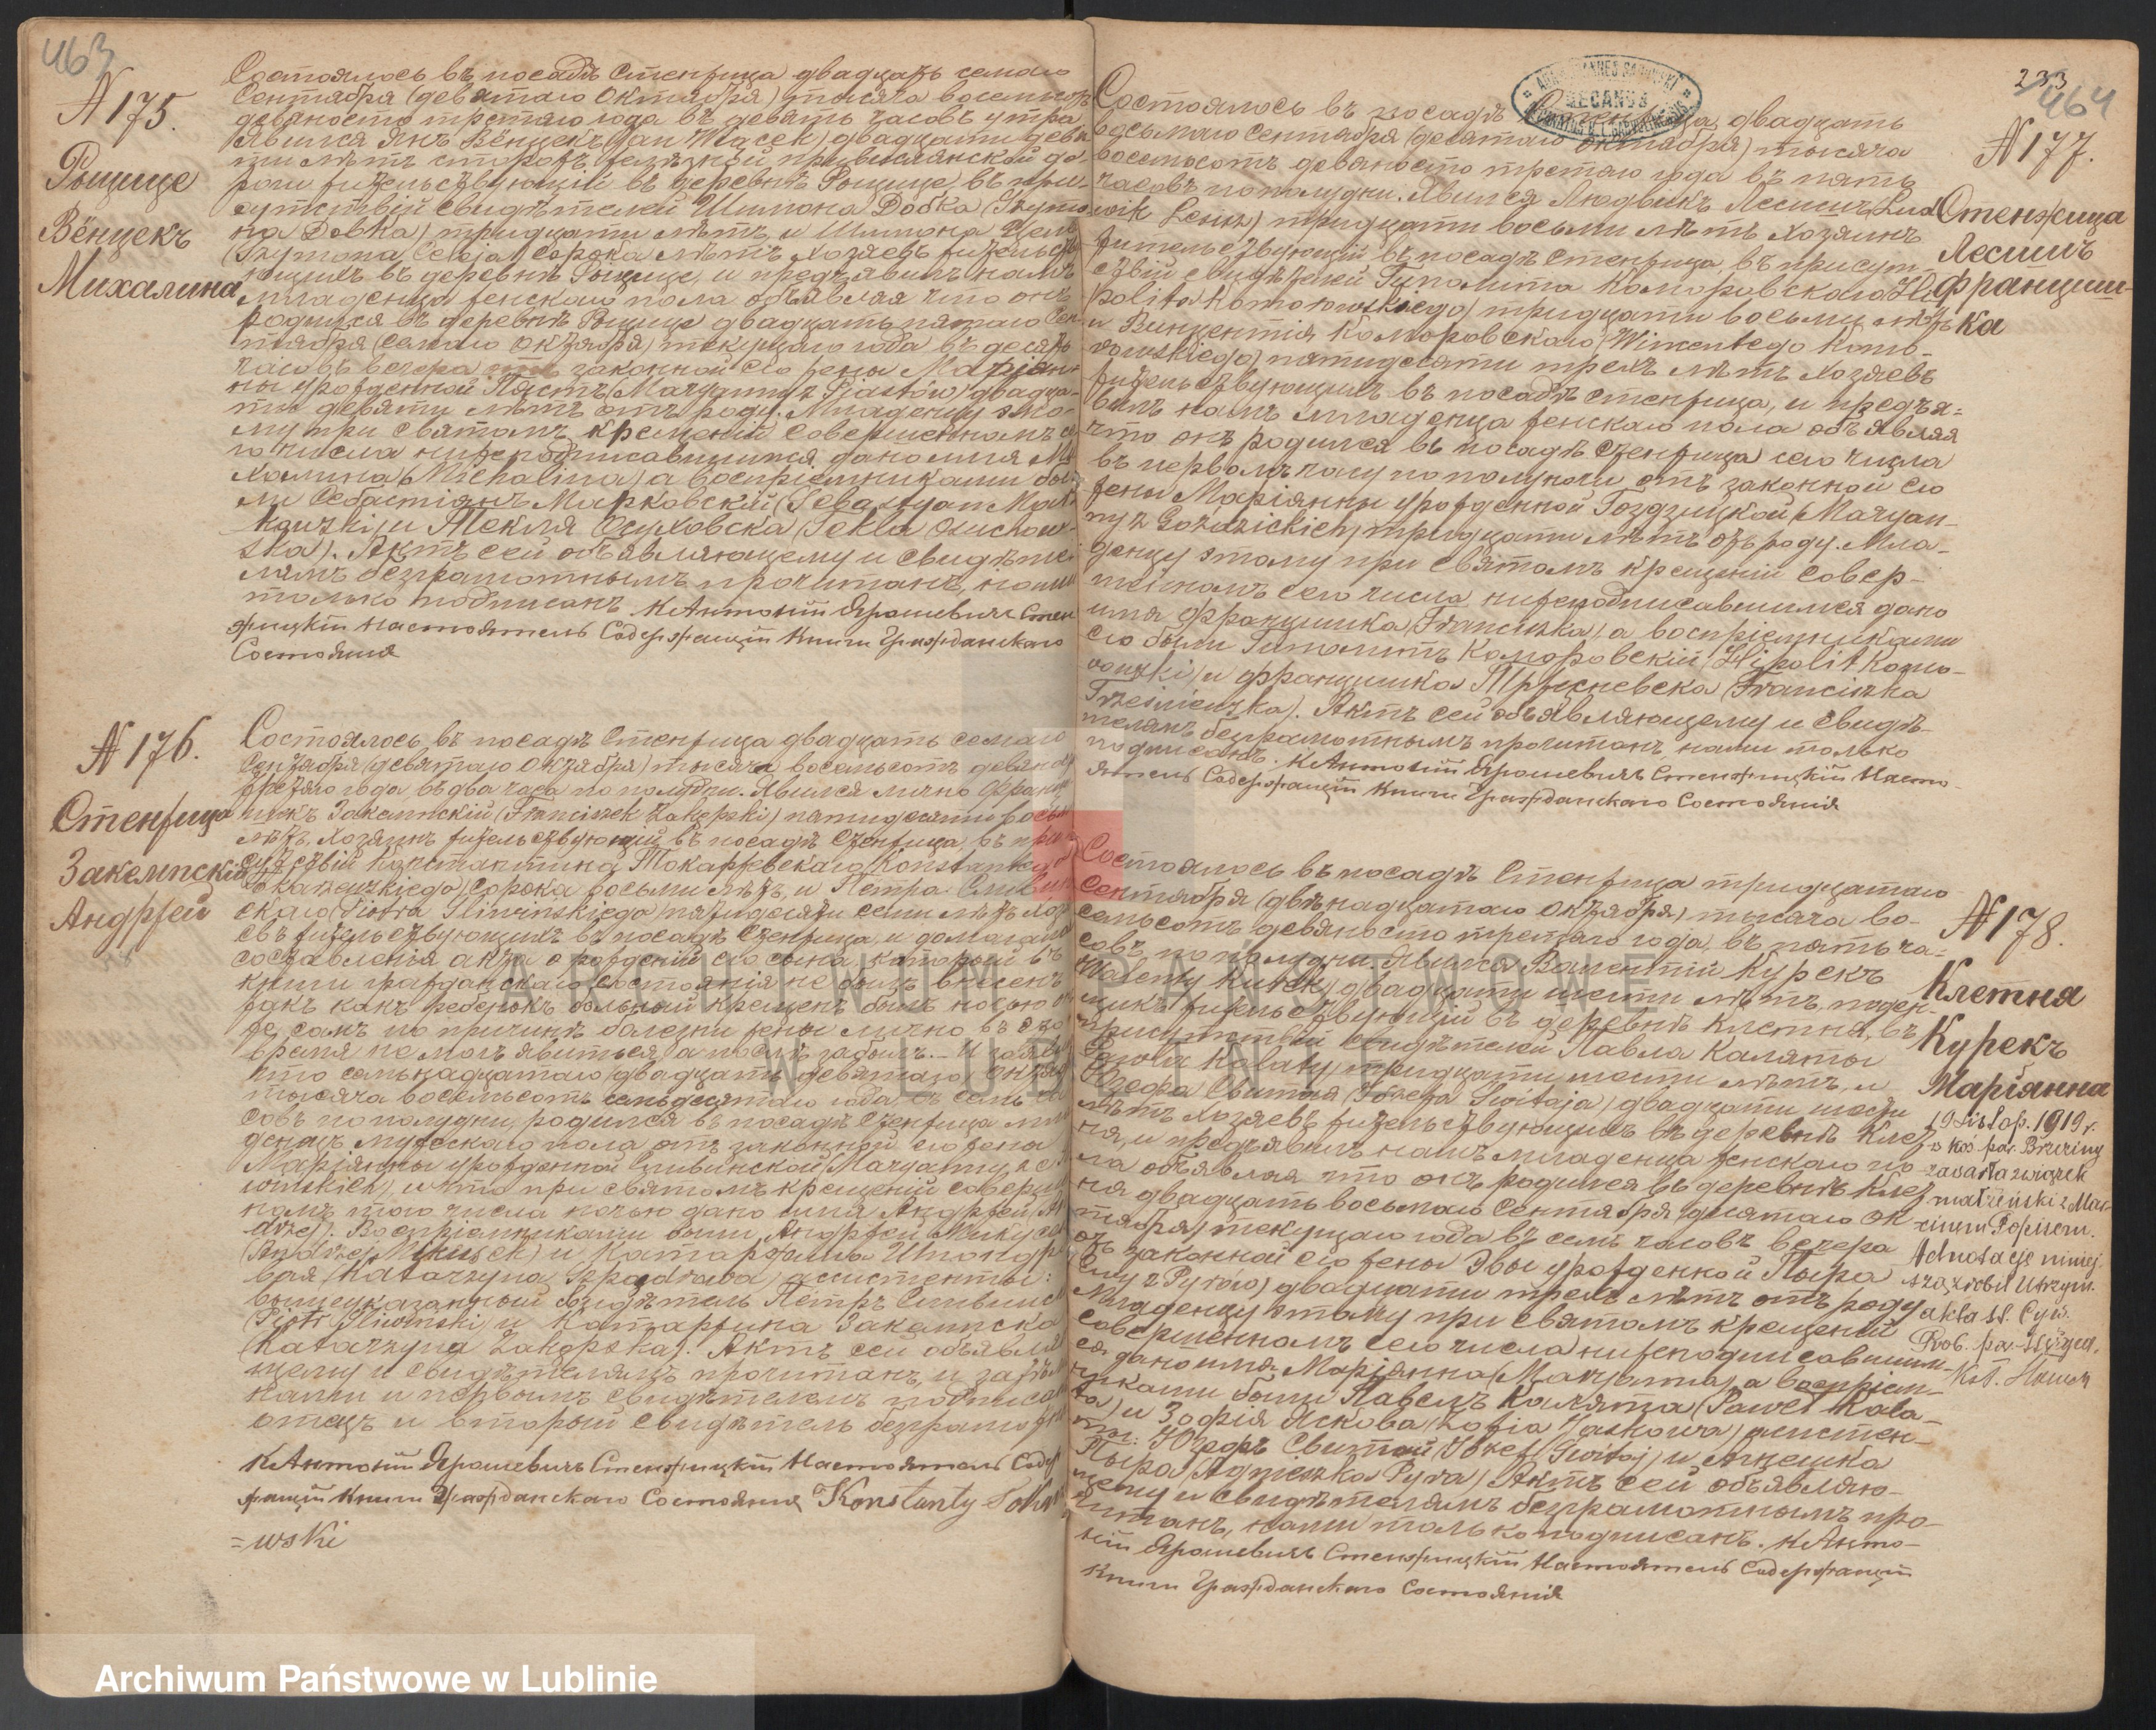 463
N 175.
Рыщице
Вёнцекъ
Михалина
Состоялось въ посадѣ Стенжица двадцать седьмаго
Сентября (девятаго Октября) тысяча восемьсотъ
девяносто третьяго года въ девять часовъ утра
Явился Янъ Вёнцекъ (Jan Więcek) двадцати девя-
ти лѣтъ сторожъ желѣзной привислянской до-
роги жительствующій въ деревнѣ Рыщице, въ при-
сутствіи свидѣтелей Шимона Добка (Szymo-
на Dobka) тридцати лѣтъ, и Шимона
(Szymona) сорока лѣтъ хозяевъ жительству-
ющихъ въ деревнѣ Рыщице, и предъявилъ намъ
младенца женскаго пола объявляя что онъ
родился въ деревнѣ Рыщице двадцать пятаго Сен-
тября (седьмаго Октября) текущаго года въ десять
часовъ вечера отъ законной его жены Марьян-
ны урожденной Пястъ (Maryanny z Piastów) двадца-
ти девяти лѣтъ отъ роду. Младенцу это-
му при святомъ крещеніи совершенномъ се-
го числа нижеподписавшимся дано имя Ми-
халина (Michalina) а воспріемниками бы-
ли Себастіянъ Марковскій (Sebastyan Mar-
kowski) и Текля Осуховска (Tekla Osuchow-
ska). Актъ сей объявляющему и свидѣте-
лямъ безграмотнымъ прочитанъ, нами
только подписанъ. К Антоній Ярошевичъ Стен-
жицкій Настоятель Содержащій Книги Гражданскаго
Состоянія
N 176.
Стенжица
Закемпскій
Андржей
Состоялось въ посадѣ Стенжица двадцать седьмаго
Сентября (девятаго Октября) тысяча восемьсотъ девяносто
третьяго года, въ два часа по полудни. Явился лично Франц-
ишекъ Закемпскій (Franciszek Zakępski) пятидесяти восьми
лѣтъ, хозяинъ жительствующій въ посадѣ Стенжица, въ при-
сутствіи Константина Токаржевскаго (Konstantego
Tokarzewskiego) сорока восьми лѣтъ, и Петра Сливин-
скаго (Piotra Sliwinskiego) пятидесяти семи лѣтъ хозя-
евъ жительствующихъ въ посадѣ Стенжица, и домагался
составленія акта о рожденіи его сына, который въ
книги гражданскаго состоянія не былъ внесенъ
такъ какъ ребенокъ больной крещенъ былъ
же самъ по причинѣ болезни жены лично въ
время не могъ явиться, а послѣ забылъ. - И заявилъ
что семьнадцатаго (двадцать девятаго) Октября
тысяча восемьсотъ семьдесятаго года въ семь ча-
совъ по полудни, родился въ посадѣ Стенжица мла-
денецъ мужескаго пола отъ законной его жены
Марьянны урожденной Сливинской (Maryanny z Sli-
winskich), и что при святомъ крещеніи соверше-
номъ того числа дано имя Андржей (An-
drzej). Воспріемниками были Андржей Микусекъ
(Andrzej Mikusek) и Катаржина Шпондро-
вая (Katarzyna Szpądrowa) ассистенты:
вышеуказанный свидѣтель Петръ Сливинскій
(Piotr Sliwinski) и Катаржина Закемпска
(Katarzyna Zakępska). Актъ сей объявля-
щему и свидѣтелямъ прочитанъ, и затѣмъ
нами и первымъ свидѣтелемъ подписанъ
отецъ и вторый свидѣтель безграмотны
К Антоній Ярошевичъ Стенжицкій Настоятель Содер-
жащій Книги Гражданскаго Состоянія Konstanty Tokar
= wski
233
464
N 177.
Стенжица
Лесишъ
Францишка
Состоялось въ посадѣ Стенжица, двадцать
восьмаго Сентября (десятаго Октября) тысяча
восемьсотъ девяносто третьяго года въ пять
часовъ по полудни. Явился Людвикъ Лесишъ (Lud-
wik Lesisz) тридцати восьми лѣтъ хозяинъ
жительствующій въ посадѣ Стенжица, въ присут-
ствіи свидѣтелей Гиполита Коморовскаго (Hi-
polita Komorowskiego) тридцати восьми лѣтъ
и Винцентія Коморовскаго (Wincentego Komo-
rowskiego) пятидесяти трехъ лѣтъ хозяевъ
жительствующихъ въ посадѣ Стенжица, и предъя=
вилъ намъ младенца женскаго пола объявляя
что онъ родился въ посадѣ Стенжица сего числа
въ первомъ часу по полуночи отъ законной его
жены Маріянны урожденной Гоздзицкой (Maryan-
ny z Gozdzickich) тридцати лѣтъ отъ роду. Мла-
денцу этому при святомъ крещеніи совер-
шенномъ сего числа нижеподписавшимся дано
имя Францишка (Franciszka), а воспріемниками
его были Гиполитъ Коморовскій (Hipolit Komo-
rowski) и Францишка Тржесневска (Franciszka
Trześniewska). Актъ сей объявляющему и свидѣ-
телямъ безграмотнымъ прочитанъ, нами только
подписанъ. К Антоній Ярошевичъ Стенжицкій Насто-
ятель Содержащій Книги Гражданскаго Состоянія
N 178.
Клетня
Курекъ
Маріянна
19 listop. 1919 r.
w koś. par. Brzeziny
zawarła związek
małżeński z Mar-
cinem Popisem.
Adnotację niniej-
szą zrobił Utrzym.
akta st. Cyw.
Prob. par.
Состоялось въ посадѣ Стенжица тридцатаго
Сентября (двѣнадцатаго Октября) тысяча во-
семьсотъ девяносто третьяго года, въ пять ча=
совъ по полудни. Явился Валентій Курекъ
(Walenty Kurek) двадцати шести лѣтъ, поден-
щикъ жительствующій въ деревнѣ Клетня, въ
присутствіи свидѣтелей Павла Каляты
(Pawła Kalaty) тридцати шести лѣтъ, и
Юзефа Свитая (Józefa Switaja) двадцати шести
лѣтъ хозяевъ жительствующихъ въ деревнѣ Клет-
ня, и предъявилъ намъ младенца женскаго по-
ла объявляя что онъ родился въ деревнѣ Клет-
ня двадцать восьмаго Сентября (десятаго Ок-
тября) текущаго года въ семь часовъ вечера
отъ законной его жены Эвы урожденной Пыра
(Ewy z Pyrów) двадцати трехъ лѣтъ отъ роду.
Младенцу этому при святомъ крещеніи
совершенномъ сего числа нижеподписавшим-
ся дано имя Маріянна (Maryanna), а воспріем-
никами были Павелъ Калята (Paweł Kala-
ta) и Зофія Яскова (Zofia Jaskowa) ассистен-
ты: Юзефъ Свитай (Józef Switaj) и Агнешка
Пыра (Agnieszka Pyra) Актъ сей объявляю-
щему и свидѣтелямъ безграмотнымъ про-
читанъ, нами только подписанъ. К Анто-
ній Ярошевичъ Стенжицкій Настоятель Содержащій
Книги Гражданскаго Состоянія
ARCHIWUM PAŃSTWOWE
W LUBLINIE
Archiwum Państwowe w Lublinie